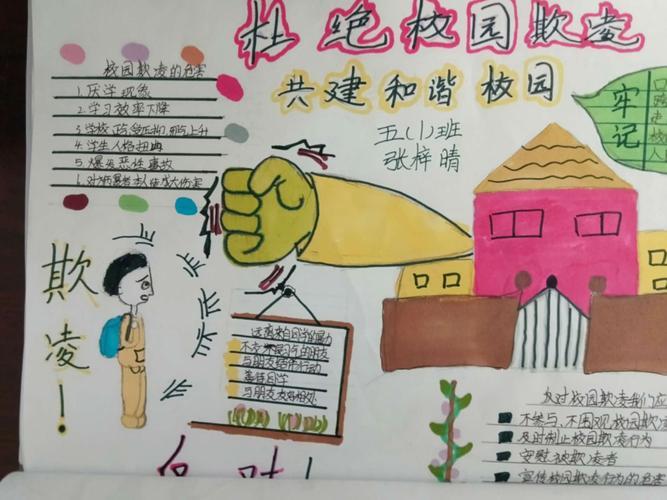 杜绝校园欺凌
共建和谐校园
五(1)班
张梓晴
校园欺凌的危害
1.厌学现象
2.学习效率下降
4.学生人格扭曲
5.爆发恶性事故
牢记
欺凌!
远离来自同学的暴力
与朋友结伴行动
善待同学
与朋友友好相处
反对校园欺凌我们应
不参与,不围观校园欺凌
及时制止校园欺凌行为
安慰被欺凌者
宣传校园欺凌行为的危害